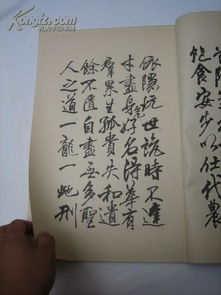 Kongfz.com
飽食安步以仕代農
依隱玩世詭時不逢
才盡身危好名得華有
羣累生孤貴失和遺
餘不匱自盡無多聖
人之道一龍一蛇形